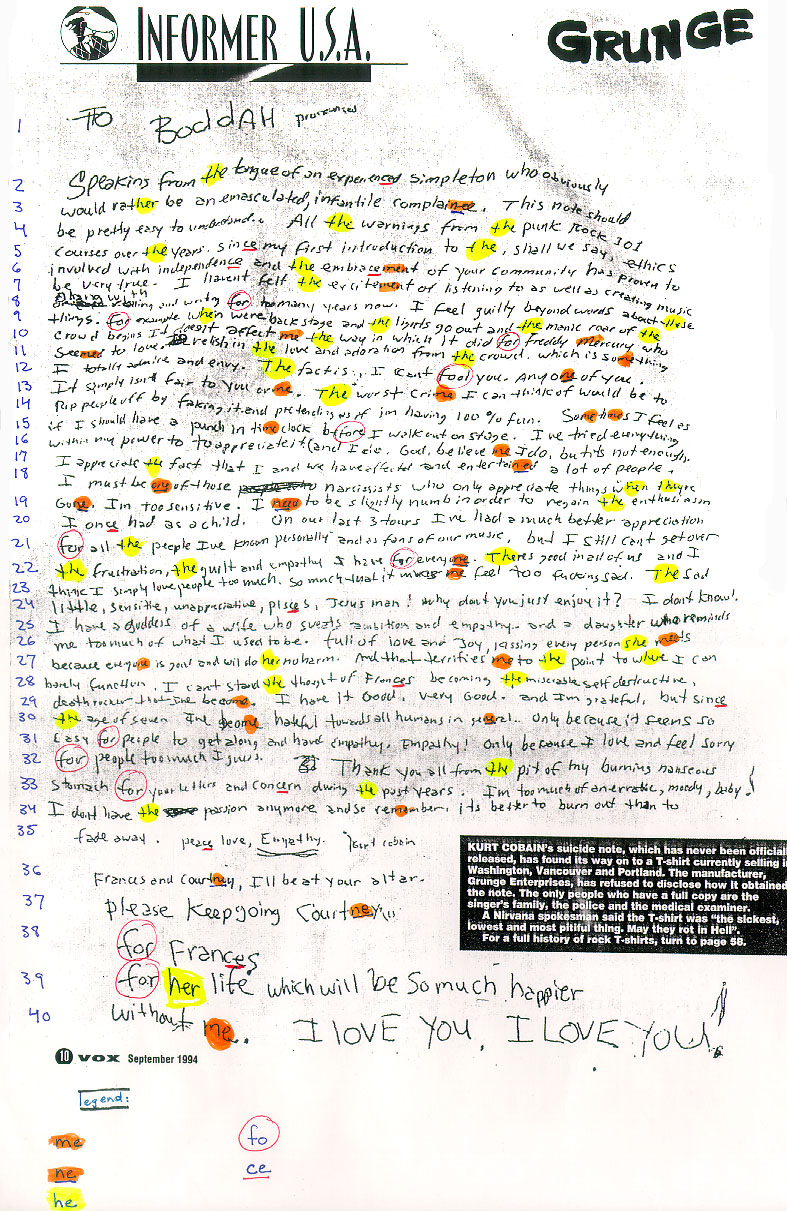 INFORMER U.S.A.
GRUNGE
1 To BoddAH pronounced
2 Speaking from the tongue of an experienced simpleton who obviously
3 would rather be an emasculated, infantile complainee. This note should
4 be pretty easy to understand. All the warnings from the punk rock 101
5 courses over the years. since my first introduction to the, shall we say, ethics
6 involved with independence and the embracement of your community has proven to
7 be very true. I havent felt the excitement of listening to as well as creating music
8 along with reading and writing for too many years now. I feel guilty beyond words about these
9 things. for example when were backstage and the lights go out and the manic roar of the
10 crowd begins It doesnt affect me the way in which it did for freddy mercury who
11 seemed to love, relish in the love and adoration from the crowd. which is something
12 I totally admire and envy. The fact is, I cant fool you. Any one of you.
13 It simply isnt fair to you or me. The worst crime I can think of would be to
14 Rip people off by faking it and pretending as if im having 100% fun. Sometimes I feel as
15 if I should have a punch in time clock before I walk out on stage. I've tried everything
16 within my power to to appreciate it (and I do. God, believe me I do, but its not enough.
17 I appreciate the fact that I and we have affected and entertained a lot of people.
18 I must be one of those narcissists who only appreciate things when theyre
19 Gone. Im too sensitive. I need to be slightly numb in order to regain the enthusiasm
20 I once had as a child. On our last 3 tours I've had a much better appreciation
21 for all the people I've known personally and as fans of our music, but I still cant get over
22 the frustration, the guilt and empathy I have for everyone. Theres good in all of us and I
23 think I simply love people too much. so much that it makes me feel too fucking sad. The sad
24 little, sensitive, unappreciative, pisces, Jesus man! why dont you just enjoy it? I dont know!
25 I have a goddess of a wife who sweats ambition and empathy. and a daughter who reminds
26 me too much of what I used to be. full of love and Joy, kissing every person she meets
27 because everyone is good and will do her no harm. And that terrifies me to the point to where I can
28 barely function. I cant stand the thought of Frances becoming the miserable self destructive,
29 deathrocker that Ive become. I have it Good, very Good. and Im grateful, but since
30 the age of seven Ive become hateful towards all humans in general.. Only because it seems so
31 Easy for people to get along and have empathy. Empathy! Only because I love and feel sorry
32 for people too much I guess. Thank you all from the pit of my burning nauseous
33 Stomach for your letters and concern during the past years. I'm too much of an erratic, moody, baby!
34 I dont have the passion anymore and so remember. its better to burn out than to
35 fade away. peace love, Empathy. Kurt cobain
36 Frances and Courtney, I'll be at your altar.
37 please Keep going Courtney,
38 for Frances
39 for her life which will be so much happier
40 without me. I LOVE YOU, I LOVE YOU!
KURT COBAIN's suicide note, which has never been official
released, has found its way on to a T-shirt currently selling i
Washington, Vancouver and Portland. The manufacturer,
Grunge Enterprises, has refused to disclose how it obtained
the note. The only people who have a full copy are the
singer's family, the police and the medical examiner.
A Nirvana spokesman said the T-shirt was "the sickest,
lowest and most pitiful thing. May they rot in Hell".
For a full history of rock T-shirts, turn to page 58.
10 VOX September 1994
legend:
me fo
ne ce
he